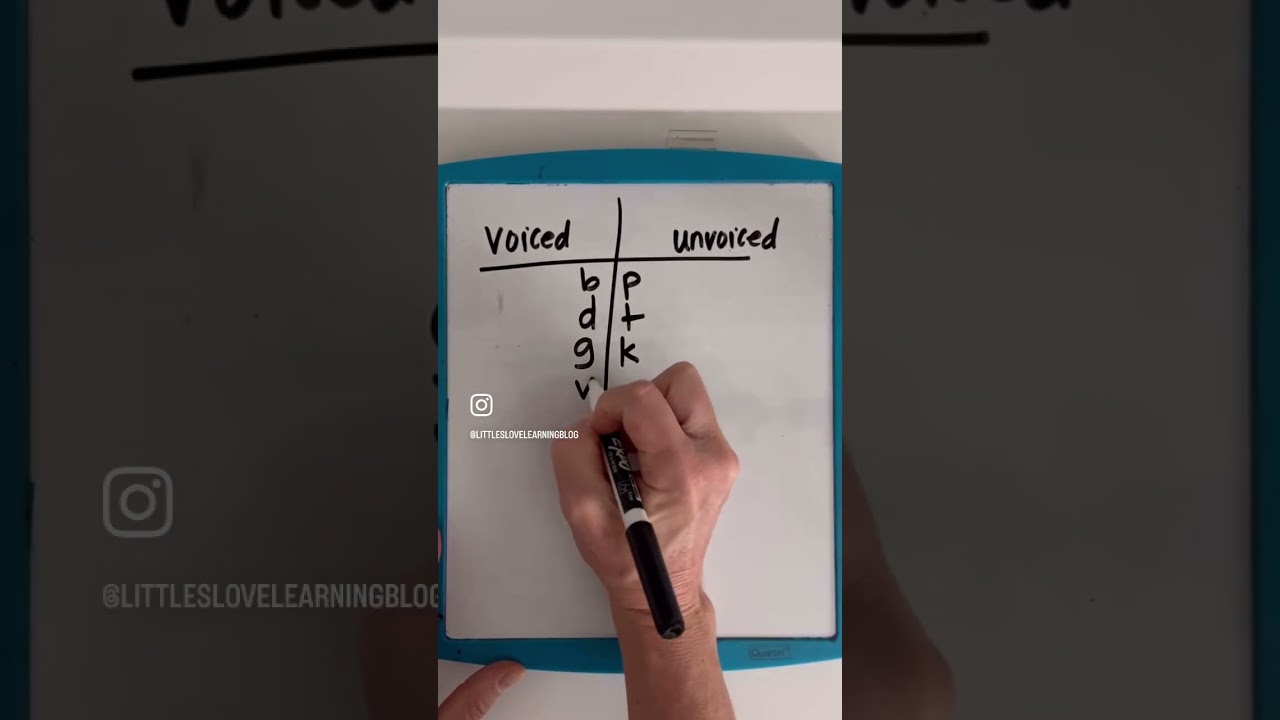 voiced unvoiced
b p
d t
g k
v
@LITTLESLOVELEARNINGBLOG
EXPO
Quartet
@LITTLESLOVELEARNINGBLOG